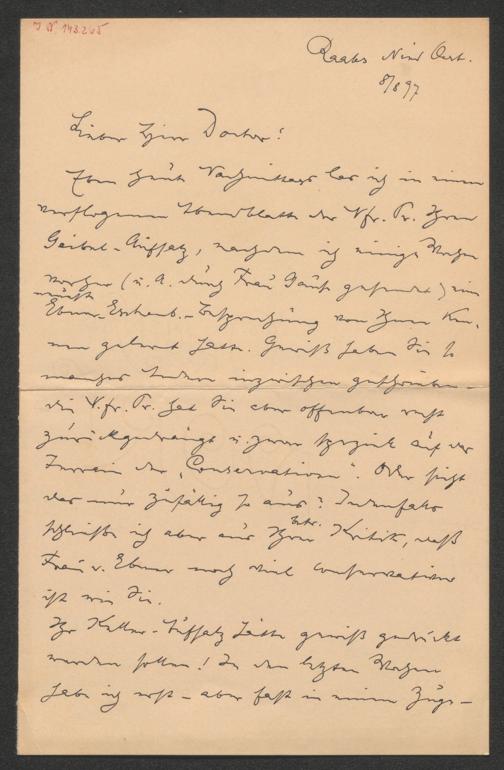 I.N. 143.265
Raabs Nied Oest.
8/8 97
Lieber Herr Doctor!
Eben heute Nachmittags las ich in einem
verflogenen Abendblatte der N. fr. Pr. Ihren
Geibel-Aufsatz, nachdem ich einige Wochen
vorher (u. A. durch Frau gesendet) eine
Ebner-Eschenb.-Besprechung von Ihnen
gelernt hatte. Gewiß haben Sie so
manches Andere inzwischen geschrieben –
die N. fr. Pr. hat Sie aber offenbar recht
zurückgedrängt u. zwar speziell auf das
Terrain der „Conservativen“. Oder sieht
das nur zufällig so aus? Jedenfalls
schließe ich aber aus Ihrer Kritik, daß
Frau v. Ebner noch viel conservativer
ist wie Sie.
Ihr Keller-Aufsatz hätte gewiß gedruckt
werden sollen! In den letzten Wochen
habe ich erst – aber fast in einem Zuge –